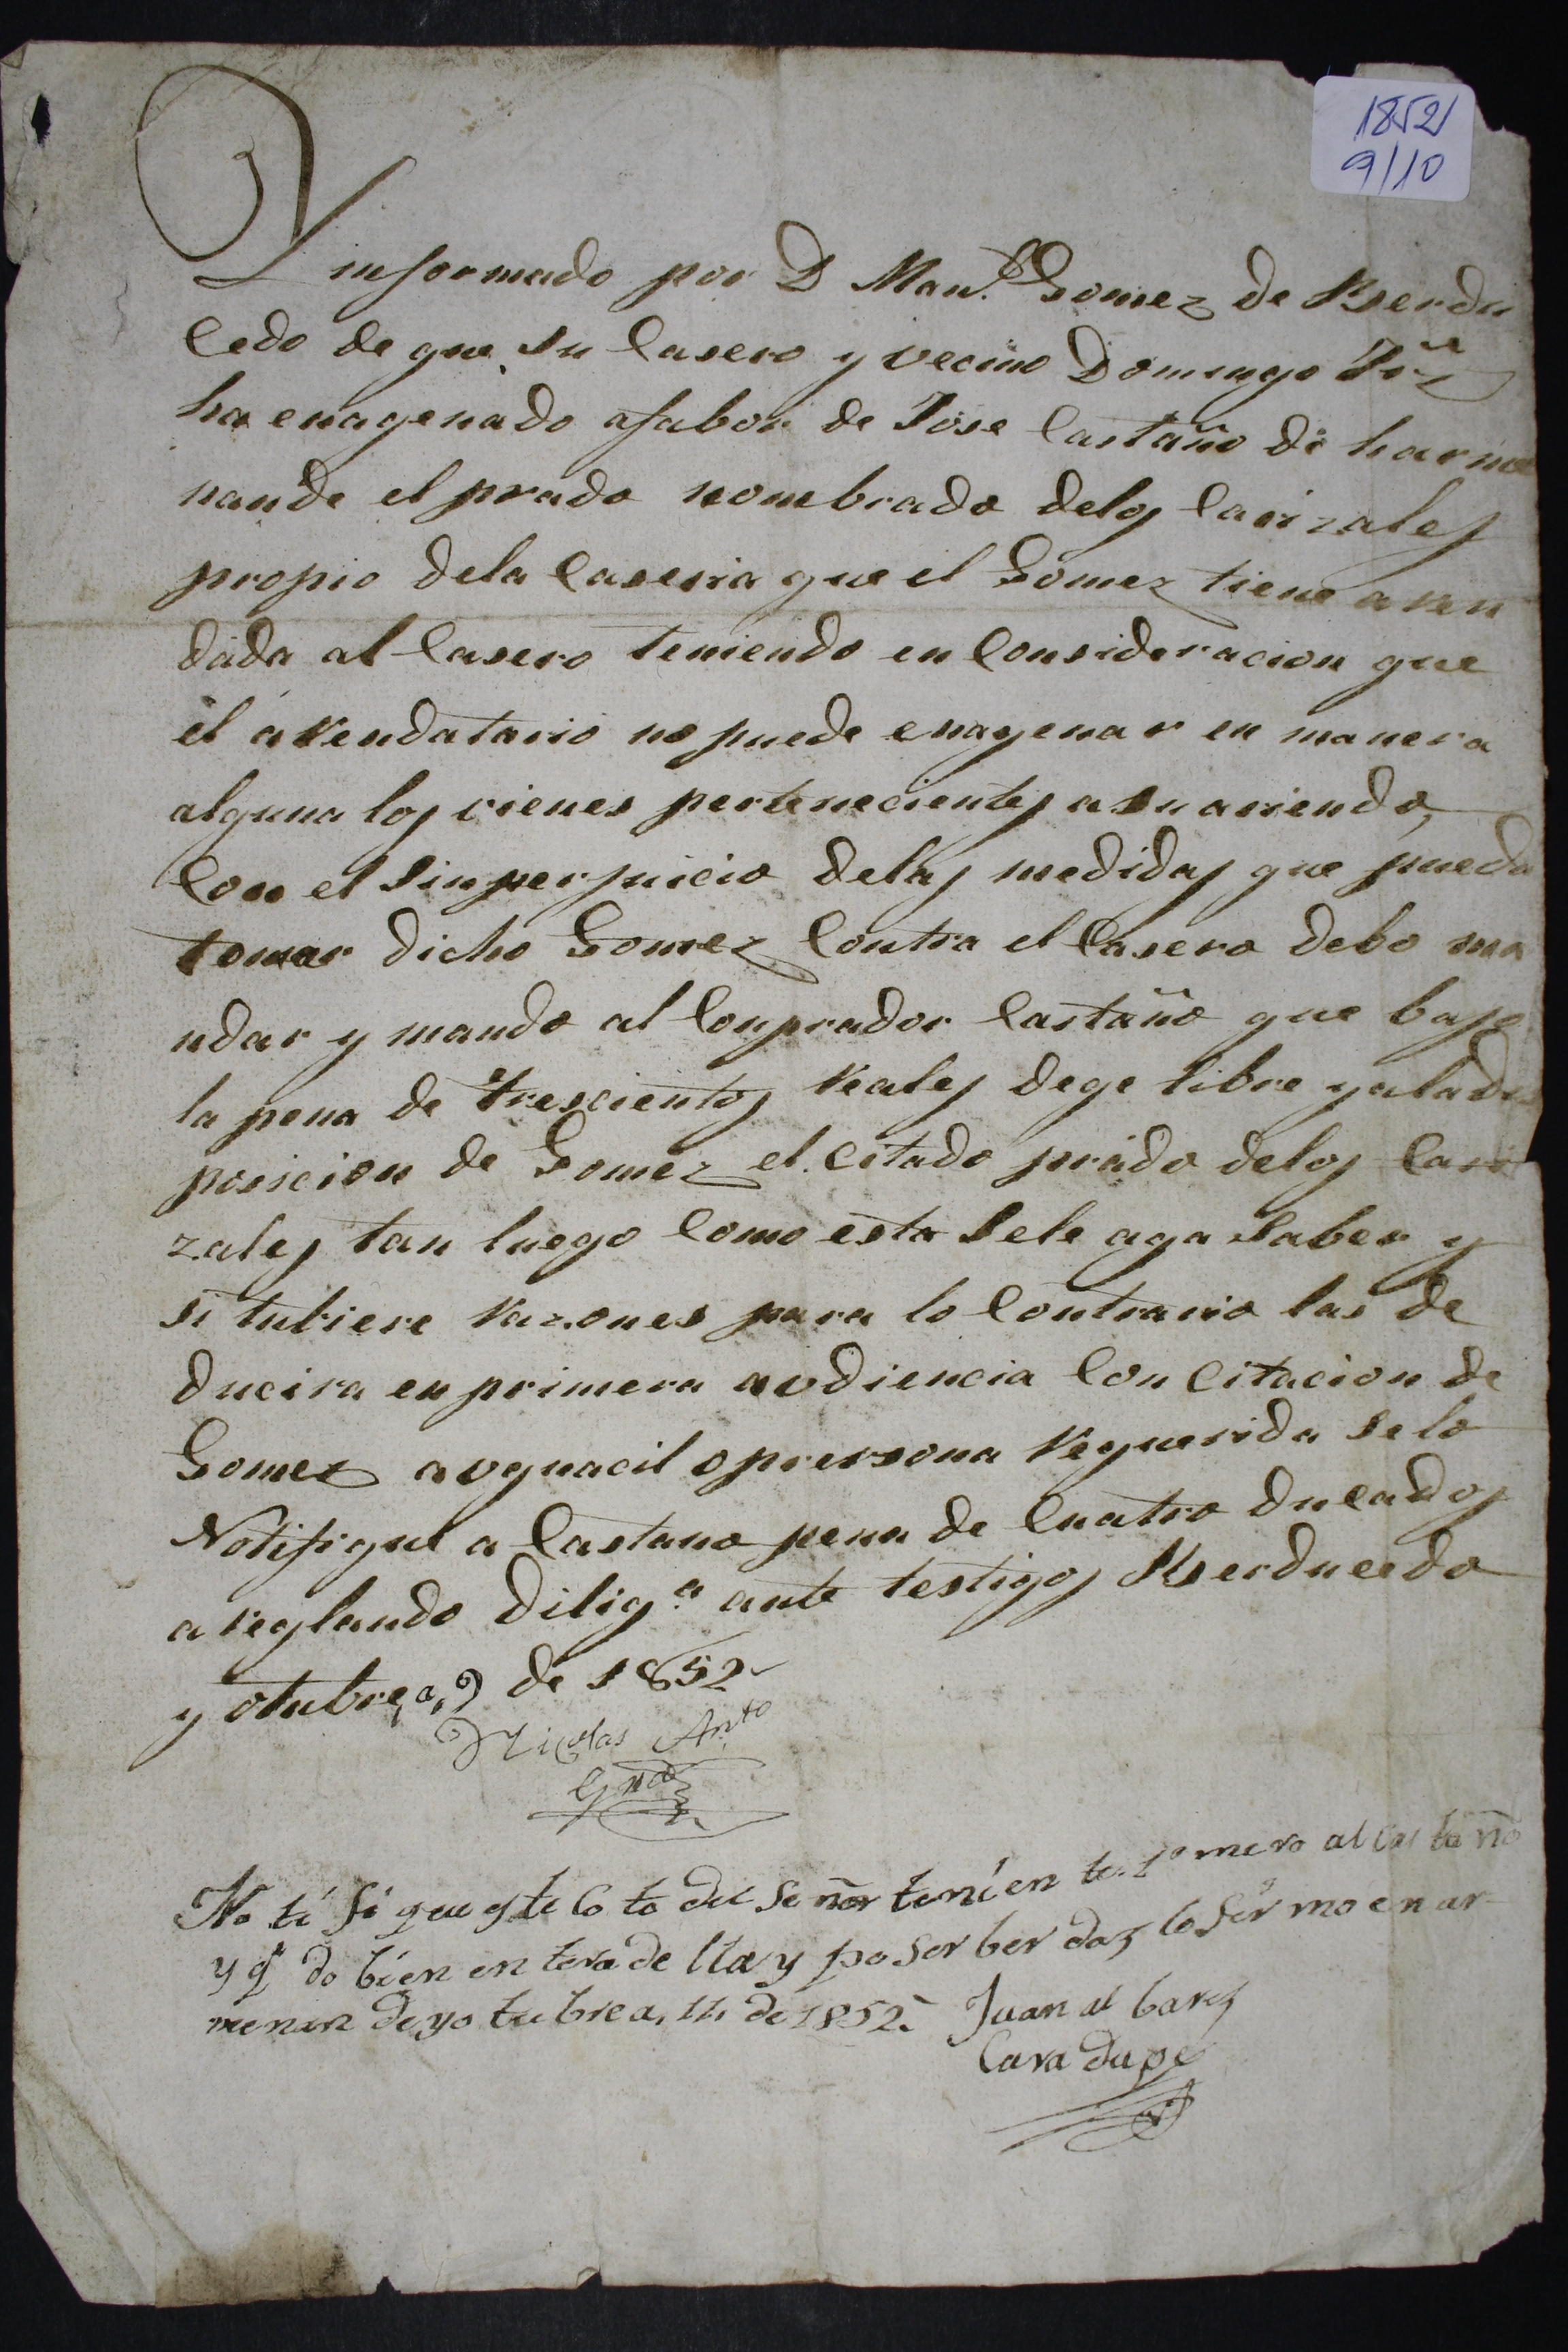 1852
9/10
Y informado por D Man.l Gomez de Berdu
cedo de que su casero y vecino Domingo
ha enagenado afabor de Jose Castaño de harme
nande el prado nombrado delos Carizales
propio dela caseria que el Gomez tiene aren
dada al casero teniendo en consideracion que
el arendatario no puede enagenar en manera
alguna los vienes pertenecientes a su ariendo,
Con el sin perjuicio delas medidas que pueda
tomar dicho Gomez contra el casero debo ma
ndar y mando al conprador Castaño que bajo
la pena de trescientos reales dege libre y aladis
posicion de Gomez el citado prado delos Cari
zales tan luego como esta sele aga saber y
si tubiere razones para lo contrario las de
ducira en primera avdiencia con citacion de
Gomez avguacil o prersona requerida se lo
Notifique a Castano pena de cuatro ducados
areglando dilig.a ante testigos Berducedo
y otubre, a, 9 de 1852
Nicolas An.to
No ti fi que yste Co to del señor tenien te 1º mero al Castaño
y qdo bien en terade lla y po ser ber daz lo firmo en ar
menan de yo tubre a, 11, de 1852. Juan al barez
Cara duge